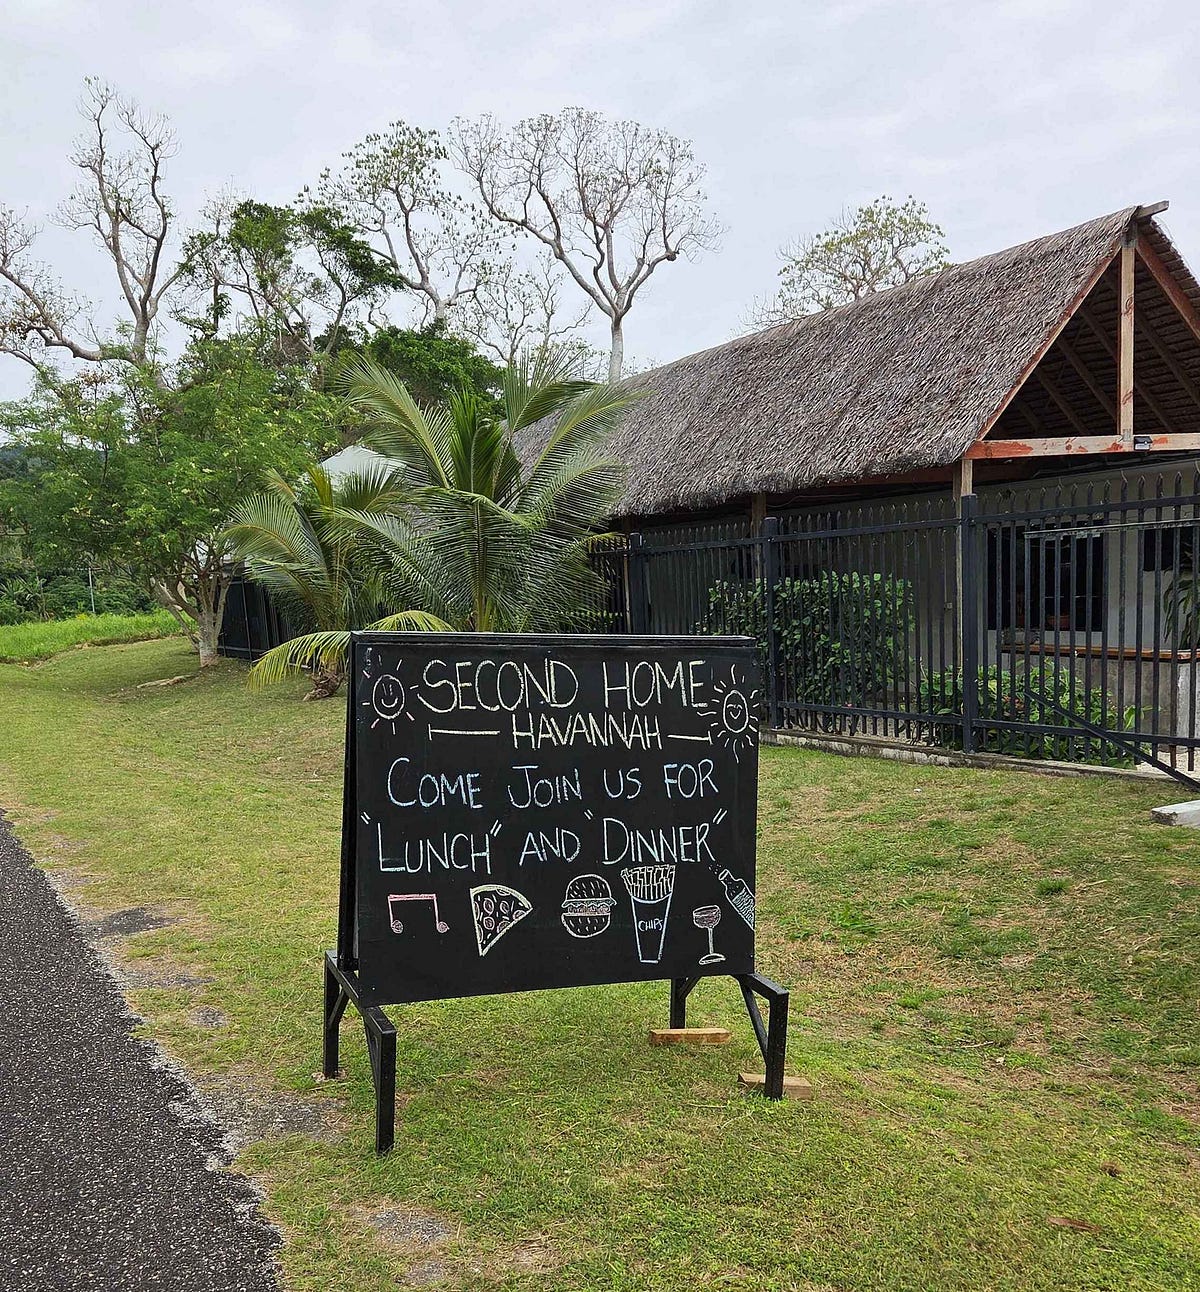 SECOND HOME
HAVANNAH
COME JOIN US FOR
"LUNCH" AND "DINNER"
CHIPS